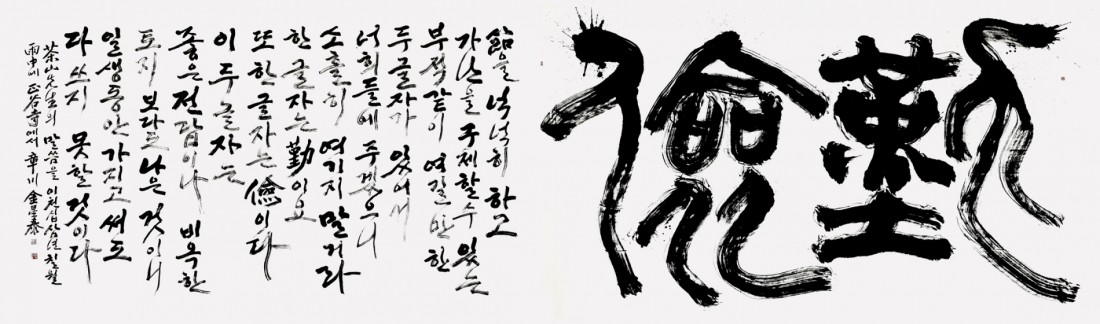 勤儉
삶을 넉넉히 하고
가난을 구제할 수 있는
부적같이 여길 만한
두 글자가 있어서
너희들에 주겠으니
소홀히 여기지 말거라
한 글자는 勤이요
또 한 글자는 儉이다
이 두 글자는
좋은 전답이나 비옥한
토지 보다도 나은 것이니
일생동안 가지고 써도
다 쓰지 못할 것이다
茶山先生의 말씀을 이천십삼년 칠월
雨中에 에서 章川 金星泰